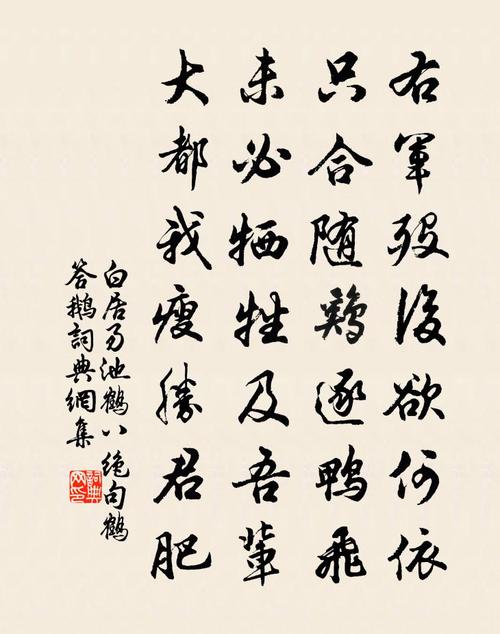 右軍歿後欲何依
只合随鷄逐鴨飛
未必牺牲及吾輩
大都我瘦勝君肥
白居易池鶴八絶句鶴
答鵝詞典網集
詞典
网印